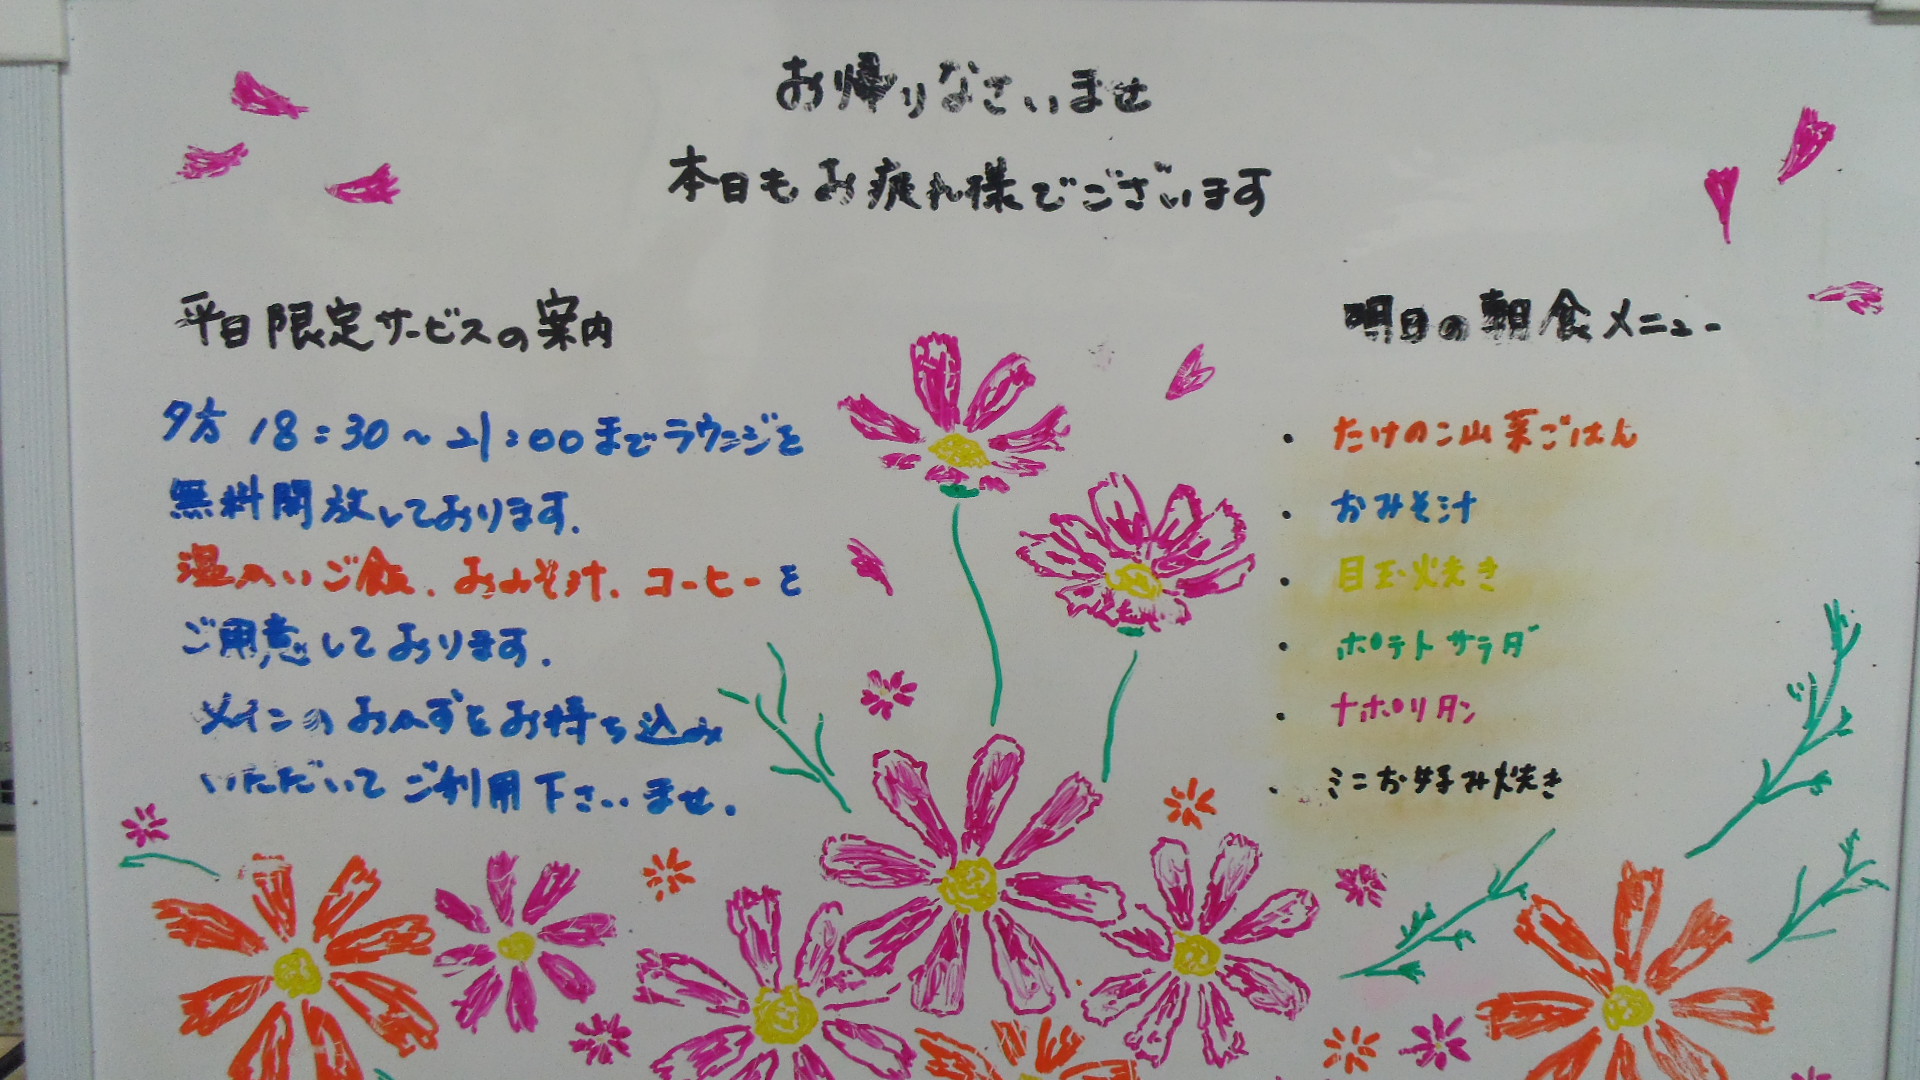 お帰りなさいませ
本日もお疲れ様でございます
平日限定サービスの案内
夕方 18:30～21:00までラウンジを
無料開放しております.
温かいご飯、おみそ汁、コーヒーを
ご用意しております.
メインのおかずをお持ち込み
いただいてご利用下さいませ.
明日の朝食メニュー
・たけのこ山菜ごはん
・おみそ汁
・目玉焼き
・ポテトサラダ
・ナポリタン
・ミニお好み焼き